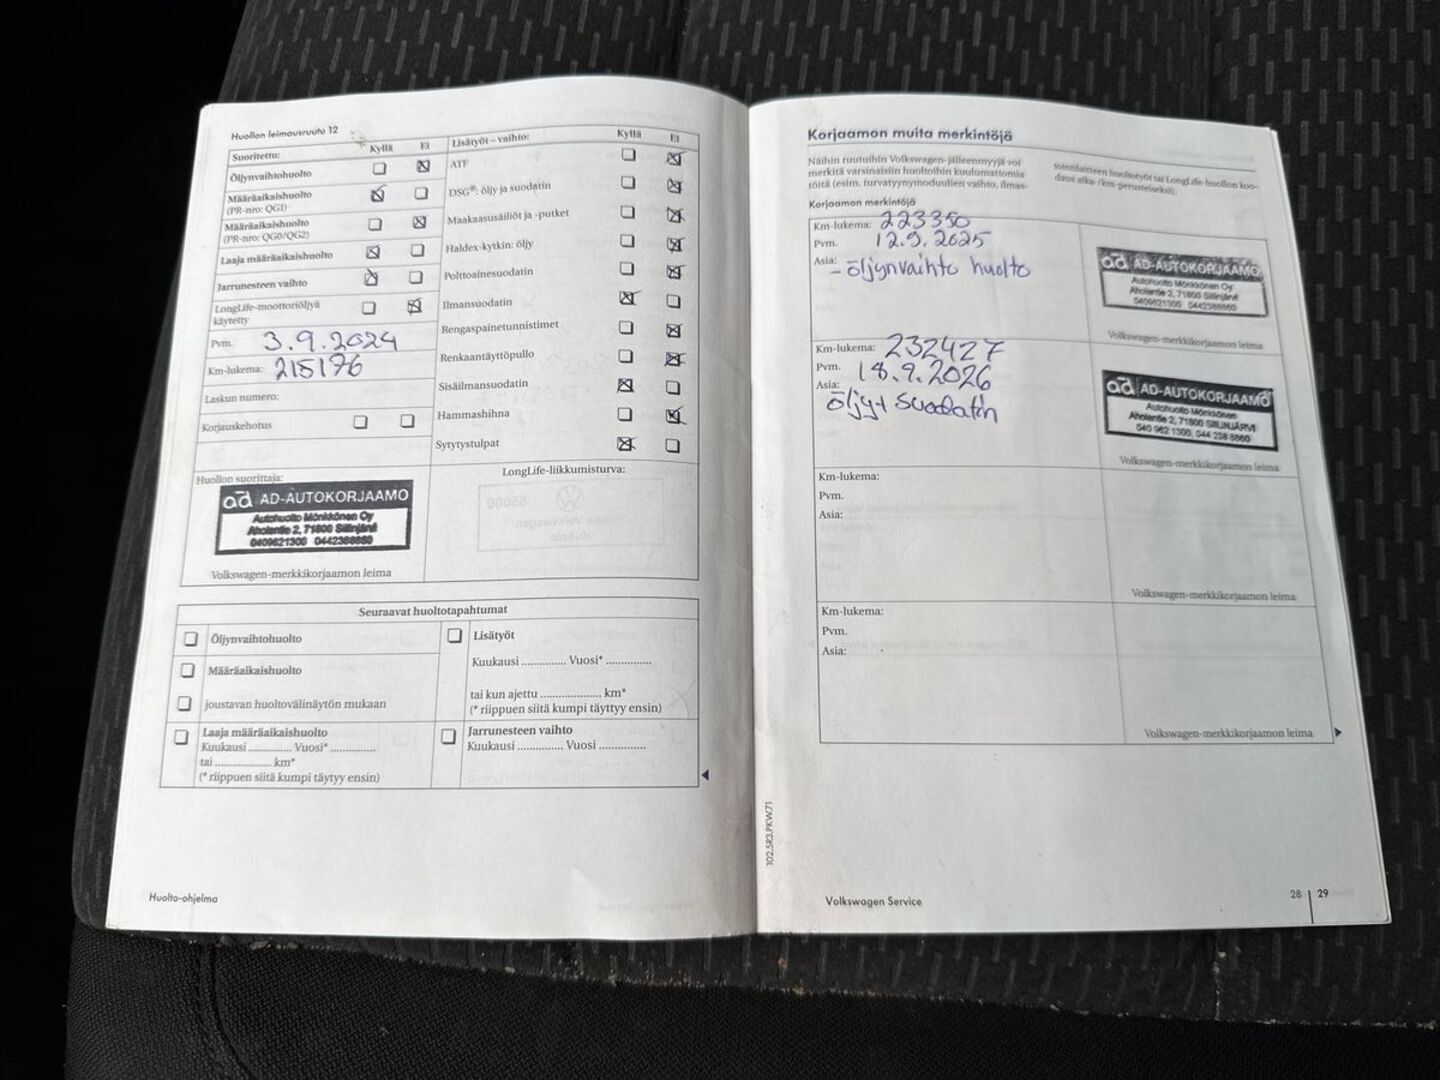 Huollon leimausruutu 12
Suoritettu: Kyllä Ei
Öljynvaihtohuolto
Määräaikaishuolto
(PR-nro: QGI)
Määräaikaishuolto
(PR-nro: QG0/QG2)
Laaja määräaikaishuolto
Jarrunesteen vaihto
LongLife-moottoriöljyä
käytetty
Pvm. 3.9.2024
Km-lukema: 215176
Laskun numero:
Korjauskehotus
Lisätyöt – vaihto: Kyllä Ei
ATF
DSG®: öljy ja suodatin
Maakaasusäiliöt ja -putket
Haldex-kytkin: öljy
Polttoainesuodatin
Ilmansuodatin
Rengaspainetunnistimet
Renkaantäyttöpullo
Sisäilmansuodatin
Hammashihna
Sytytystulpat
Huollon suorittaja:
ad AD-AUTOKORJAAMO
Autohuolto Mönkkönen Oy
Aholantie 2, 71800 Siilinjärvi
0409621300 0442388860
Volkswagen-merkkikorjaamon leima
LongLife-liikkumisturva:
Seuraavat huoltotapahtumat
Öljynvaihtohuolto
Määräaikaishuolto
joustavan huoltovälinäytön mukaan
Laaja määräaikaishuolto
Kuukausi .............. Vuosi* ...............
tai ................... km*
(* riippuen siitä kumpi täytyy ensin)
Lisätyöt
Kuukausi .............. Vuosi* ...............
tai kun ajettu .................... km*
(* riippuen siitä kumpi täyttyy ensin)
Jarrunesteen vaihto
Kuukausi .............. Vuosi ...............
Huolto-ohjelma
Korjaamon muita merkintöjä
Näihin ruutuihin Volkswagen-jälleenmyyjä voi
merkitä varsinaisiin huoltoihin kuulumattomia
töitä (esim. turvatyynymoduulien vaihto, ilmas-
tointilaitteen huoltotyöt tai LongLife-huollon kon-
daus aika- /km-perusteiseksi).
Korjaamon merkintöjä
Km-lukema: 223350
Pvm. 12.9.2025
Asia: - öljynvaihto huolto
ad AD-AUTOKORJAAMO
Autohuolto Mönkkönen Oy
Aholantie 2, 71800 Siilinjärvi
0409621300 0442388860
Volkswagen-merkkikorjaamon leima
Km-lukema: 232427
Pvm. 18.9.2026
Asia:
öljy+ suodatin
ad AD-AUTOKORJAAMO
Autohuolto Mönkkönen
Aholantie 2, 71800 SIILINJÄRVI
040 962 1300, 044 238 8860
Volkswagen-merkkikorjaamon leima
Km-lukema:
Pvm.
Asia:
Volkswagen-merkkikorjaamon leima
Km-lukema:
Pvm.
Asia:
Volkswagen-merkkikorjaamon leima
102.5R3.PKW.71
Volkswagen Service
28 29